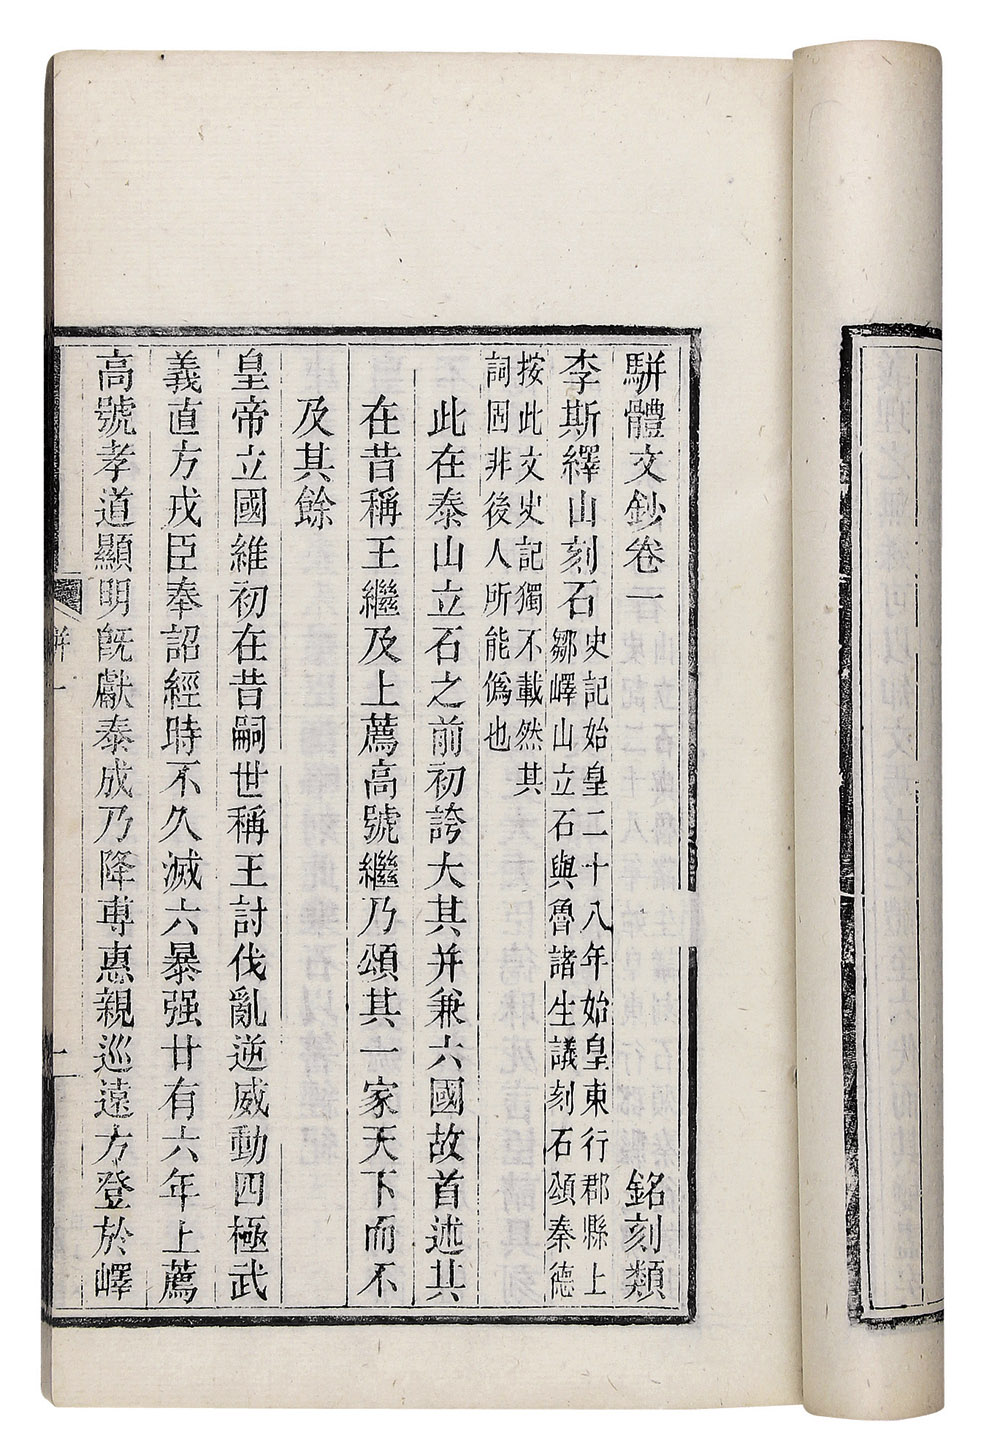 駢體文鈔卷一 銘刻類
李斯繹山刻石 史記始皇二十八年始皇東行郡縣上
鄒嶧山立石與魯諸生議刻石頌秦德
按此文史記獨不載然其
詞固非後人所能僞也
此在泰山立石之前初誇大其并兼六國故首述其
在昔稱王繼及上薦高號繼乃頌其一家天下而不
及其餘
皇帝立國維初在昔嗣世稱王討伐亂逆威動四極武
義直方戎臣奉詔經時不久滅六暴强廿有六年上薦
高號孝道顯明旣獻泰成乃降専惠親巡遠方登於嶧